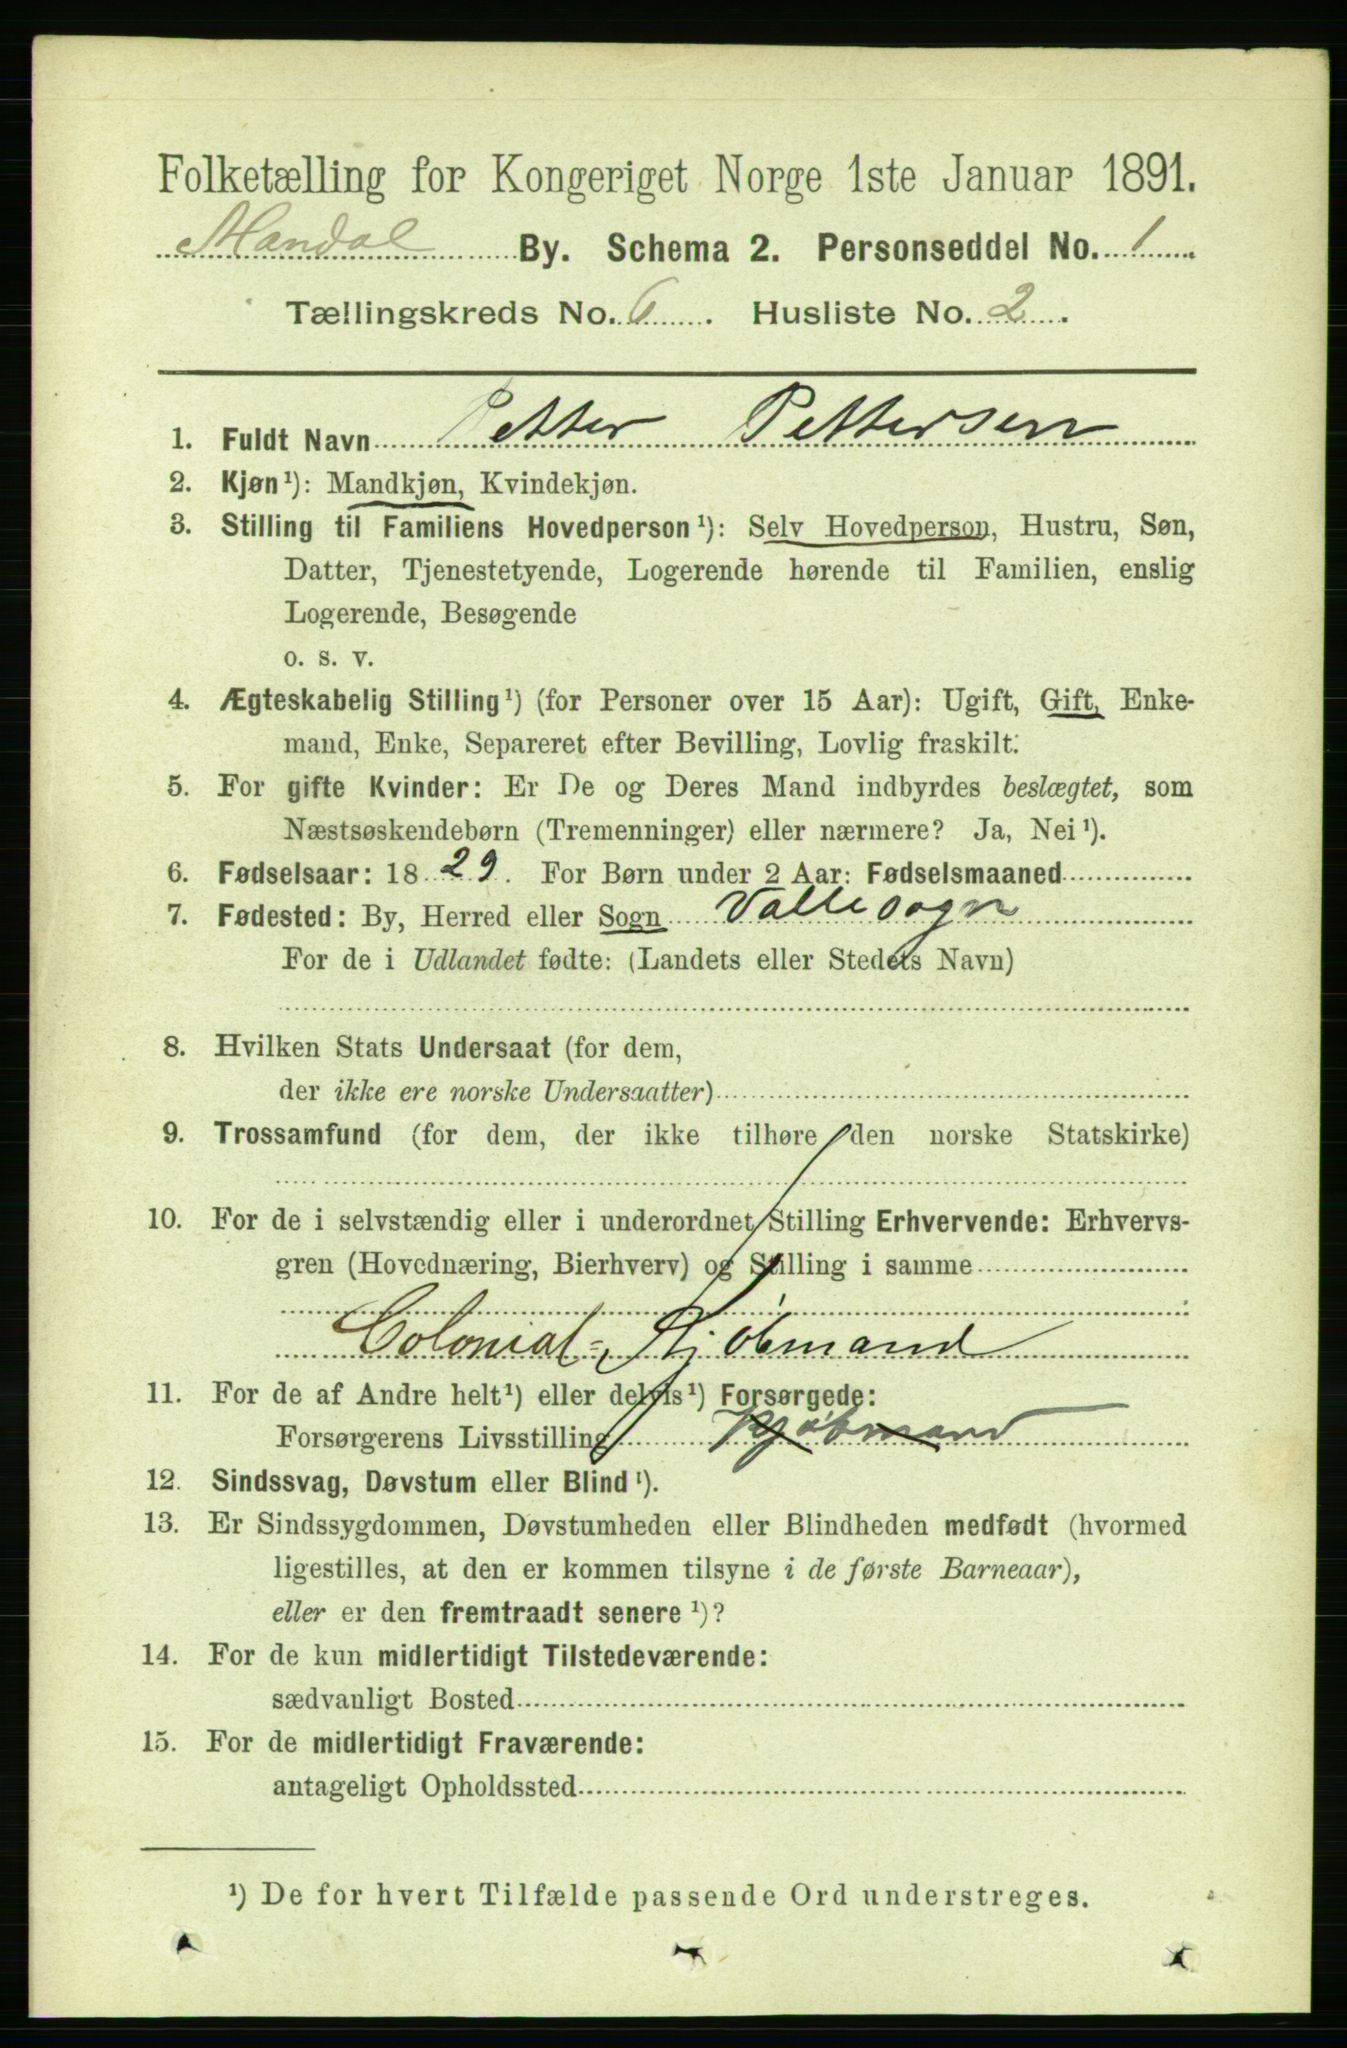 Folketælling for Kongeriget Norge 1ste Januar 1891.
Mandal By. Schema 2. Personseddel No. 1
Tællingskreds No. 6. Husliste No. 2.
1. Fuldt Navn Petter Pettersen
2. Kjøn¹): Mandkjøn, Kvindekjøn.
3. Stilling til Familiens Hovedperson¹): Selv Hovedperson, Hustru, Søn,
Datter, Tjenestetyende, Logerende hørende til Familien, enslig
Logerende, Besøgende
o. s. v.
4. Ægteskabelig Stilling¹) (for Personer over 15 Aar): Ugift, Gift, Enke-
mand, Enke, Separeret efter Bevilling, Lovlig fraskilt.
5. For gifte Kvinder: Er De og Deres Mand indbyrdes beslægtet, som
Næstsøskendebørn (Tremenninger) eller nærmere? Ja, Nei¹).
6. Fødselsaar: 1829. For Børn under 2 Aar: Fødselsmaaned
7. Fødested: By, Herred eller Sogn Valle sogn
For de i Udlandet fødte: (Landets eller Stedets Navn)
8. Hvilken Stats Undersaat (for dem,
der ikke ere norske Undersaatter)
9. Trossamfund (for dem, der ikke tilhøre den norske Statskirke)
10. For de i selvstændig eller i underordnet Stilling Erhvervende: Erhvervs-
gren (Hovednæring, Bierhverv) og Stilling i samme
Colonial=Kjøbmand
11. For de af Andre helt¹) eller delvis¹) Forsørgede:
Forsørgerens Livsstilling Kjøbmand
12. Sindssvag, Døvstum eller Blind¹).
13. Er Sindssygdommen, Døvstumheden eller Blindheden medfødt (hvormed
ligestilles, at den er kommen tilsyne i de første Barneaar),
eller er den fremtraadt senere¹)?
14. For de kun midlertidigt Tilstedeværende:
sædvanligt Bosted
15. For de midlertidigt Fraværende:
antageligt Opholdssted
¹) De for hvert Tilfælde passende Ord understreges.